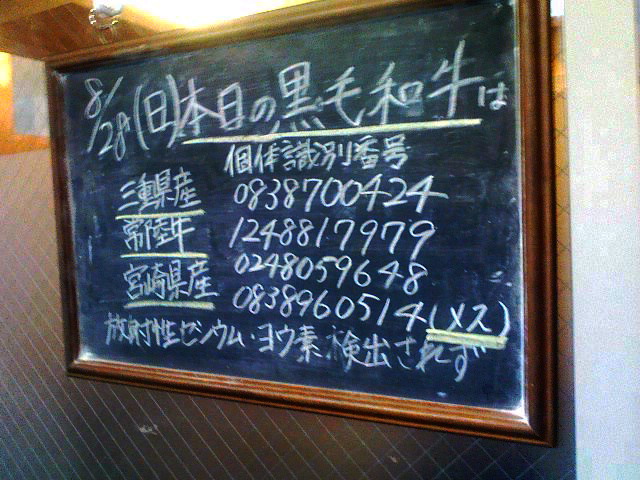 8/28(日)本日の黒毛和牛は
個体識別番号
三重県産 0838700424
常陸牛 1248817979
宮崎県産 0248059648
0838960514(メス)
放射性セシウム・ヨウ素検出されず